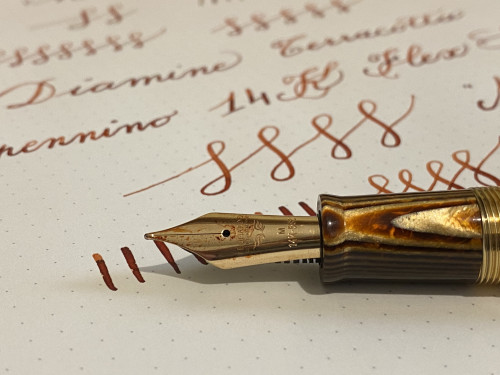 Diamine Terracotta
pennino 14K Flex
M